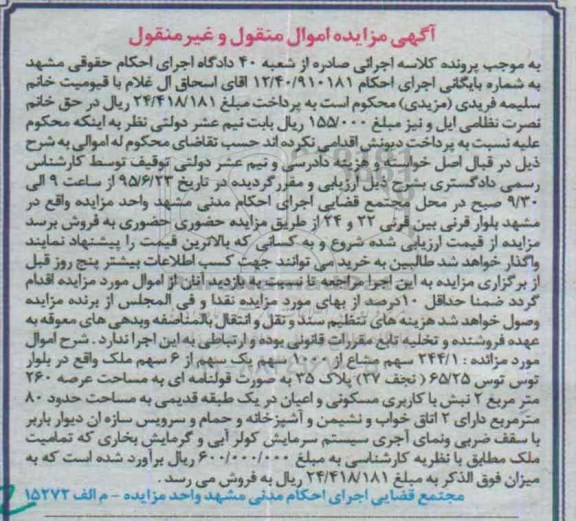 آگهی مزایده اموال منقول و غیرمنقول
به موجب پرونده کلاسه اجرائی صادره از شعبه ۴۰ دادگاه اجرای احکام حقوقی مشهد
به شماره بایگانی اجرای احکام ۱۲/۴۰/۹۱۰۱۸۱ اقای اسحاق ال غلام با قیومیت خانم
سلیمه فریدی (مزیدی) محکوم است به پرداخت مبلغ ۲۴/۴۱۸/۱۸۱ ریال در حق خانم
نصرت نظامی ایل و نیز مبلغ ۱۵۵/۰۰۰ ریال بابت نیم عشر دولتی نظر به اینکه محکوم
علیه نسبت به پرداخت دیونش اقدامی نکرده اند حسب تقاضای محکوم له اموالی به شرح
ذیل در قبال اصل خواسته و هزینه دادرسی و نیم عشر دولتی توقیف توسط کارشناس
رسمی دادگستری بشرح ذیل ارزیابی و مقرر گردیده در تاریخ ۹۵/۶/۲۳ از ساعت ۹ الی
۹/۳۰ صبح در محل مجتمع قضایی اجرای احکام مدنی مشهد واحد مزایده واقع در
مشهد بلوار قرنی بین قرنی ۲۲ و ۲۴ از طریق مزایده حضوری حضوری به فروش برسد
مزایده از قیمت ارزیابی شده شروع و به کسانی که بالاترین قیمت را پیشنهاد نمایند
واگذار خواهد شد طالبین به خرید می توانند جهت کسب اطلاعات بیشتر پنج روز قبل
از برگزاری مزایده به این اجرا مراجعه تا نسبت به بازدید آنان از اموال مورد مزایده اقدام
گردد ضمنا حداقل ۱۰درصد از بهای مورد مزایده نقدا و فی المجلس از برنده مزایده
وصول خواهد شد هزینه های تنظیم سند و نقل و انتقال بالمناصفه وبدهی های معوقه به
عهده فروشنده و تخلیه تابع مقررات قانونی بوده و ارتباطی به این اجرا ندارد . شرح اموال
مورد مزائده : ۲۴۴/۱ سهم مشاع از ۱۰۰۰ سهم یک سهم از ۶ سهم ملک واقع در بلوار
توس توس ۶۵/۲۵ ( نجف ۲۷) پلاک ۳۵ به صورت قولنامه ای به مساحت عرصه ۲۶۰
متر مربع ۲ نبش با کاربری مسکونی و اعیان در یک طبقه قدیمی به مساحت حدود ۸۰
مترمربع دارای ۲ اتاق خواب و نشیمن و آشپزخانه و حمام و سرویس سازه ان دیوار باربر
با سقف ضربی ونمای آجری سیستم سرمایش کولر آبی و گرمایش بخاری که تمامیت
ملک مطابق با نظریه کارشناسی به مبلغ ۶۰۰/۰۰۰/۰۰۰ ریال برآورد شده است که به
میزان فوق الذکر به مبلغ ۲۴/۴۱۸/۱۸۱ ریال به فروش می رسد .
مجتمع قضایی اجرای احکام مدنی مشهد واحد مزایده - م الف ۱۵۲۷۲